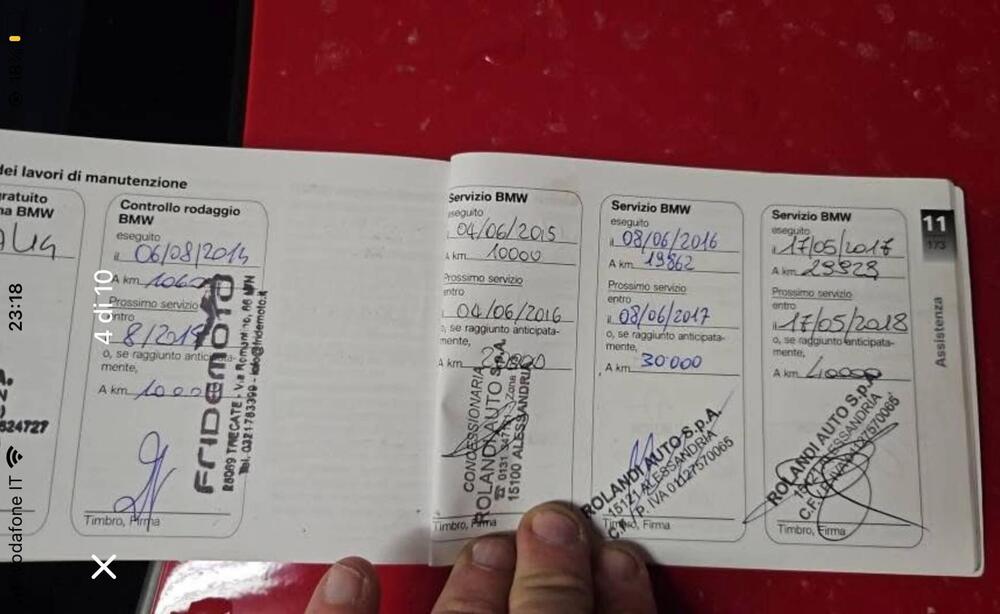 dei lavori di manutenzione
gratuito
na BMW
Controllo rodaggio
BMW
eseguito
il 06/08/2014
A km 1060
Prossimo servizio
entro
8/2015
o, se raggiunto anticipata-
mente,
A km 1000
Timbro, Firma
FRIDEMOTO
28069 TRECATE
Tel. 0321783399
524727
Servizio BMW
eseguito
il 04/06/2015
A km 10000
Prossimo servizio
entro
il 04/06/2016
o, se raggiunto anticipata-
mente,
A km 20000
CONCESSIONARIA
ROLANDI AUTO S.p.A.
15100 ALESSANDRIA
Timbro, Firma
Servizio BMW
eseguito
il 08/06/2016
A km 19862
Prossimo servizio
entro
il 08/06/2017
o, se raggiunto anticipata-
mente,
A km 30000
ROLANDI AUTO S.p.A.
15121 ALESSANDRIA
P. IVA 01127570065
Timbro, Firma
Servizio BMW
eseguito
il 17/05/2017
A km 29929
Prossimo servizio
entro
il 17/05/2018
o, se raggiunto anticipata-
mente,
A km 40000
ROLANDI AUTO S.p.A.
15121 ALESSANDRIA
Timbro, Firma
11
173
Assistenza
23:18
4 di 10
Vodafone IT
18%